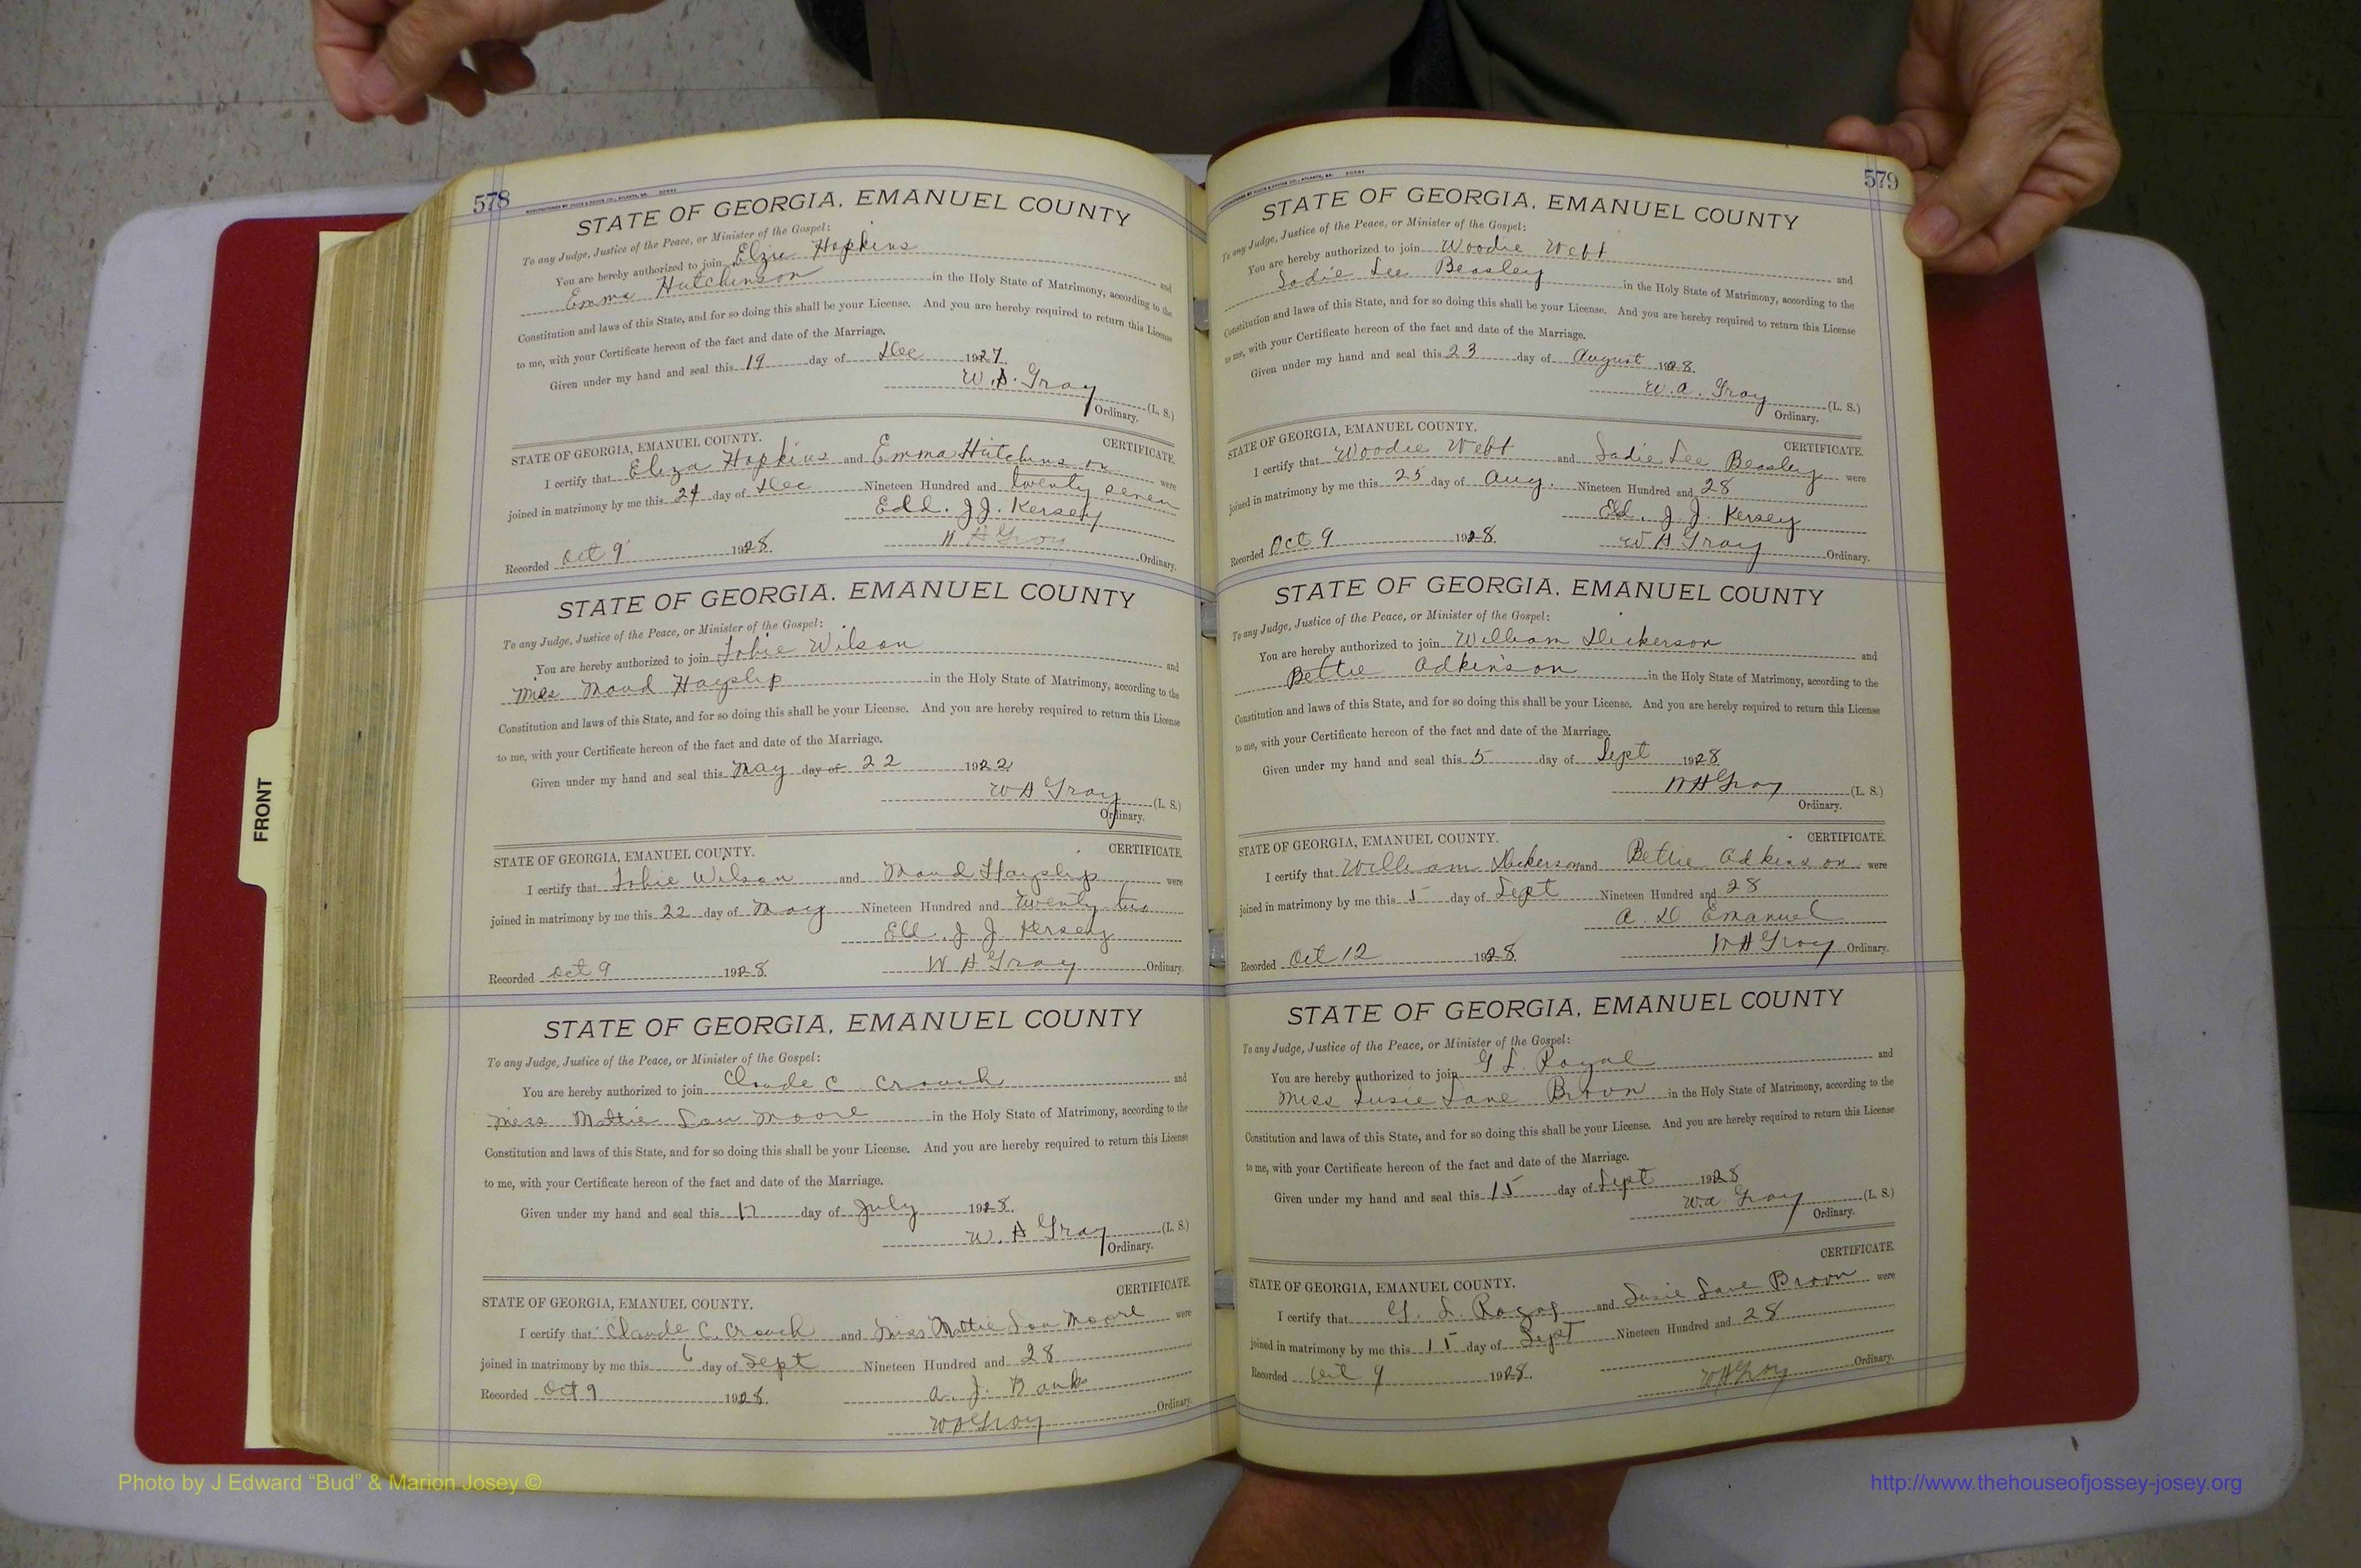 578
STATE OF GEORGIA, EMANUEL COUNTY
To any Judge, Justice of the Peace, or Minister of the Gospel:
You are hereby authorized to join Elzie Hopkins and
Emma Hutchinson in the Holy State of Matrimony, according to the
Constitution and laws of this State, and for so doing this shall be your License. And you are hereby required to return this License
to me, with your Certificate hereon of the fact and date of the Marriage.
Given under my hand and seal this 19 day of Dec 1927.
W. A. Gray (L. S.)
Ordinary.
STATE OF GEORGIA, EMANUEL COUNTY. CERTIFICATE.
I certify that Eliza Hopkins and Emma Hutchinson were
joined in matrimony by me this 24 day of Dec Nineteen Hundred and twenty seven
Edd. J J. Kersey
Recorded Oct 9 1928. W A Gray Ordinary.
STATE OF GEORGIA. EMANUEL COUNTY
To any Judge, Justice of the Peace, or Minister of the Gospel:
You are hereby authorized to join Wilson and
Miss Maud Hayslip in the Holy State of Matrimony, according to the
Constitution and laws of this State, and for so doing this shall be your License. And you are hereby required to return this License
to me, with your Certificate hereon of the fact and date of the Marriage.
Given under my hand and seal this May day of 22 1922
W A Gray (L. S.)
Ordinary.
STATE OF GEORGIA, EMANUEL COUNTY. CERTIFICATE.
I certify that Wilson and Maud Hayslip were
joined in matrimony by me this 22 day of May Nineteen Hundred and Twenty two
Eld. J J. Kersey
Recorded Oct 9 1928. W A Gray Ordinary.
STATE OF GEORGIA, EMANUEL COUNTY
To any Judge, Justice of the Peace, or Minister of the Gospel:
You are hereby authorized to join Claude C Crouch and
Miss Mattie Lou Moore in the Holy State of Matrimony, according to the
Constitution and laws of this State, and for so doing this shall be your License. And you are hereby required to return this License
to me, with your Certificate hereon of the fact and date of the Marriage.
Given under my hand and seal this 17 day of July 1928.
W. A Gray (L. S.)
Ordinary.
CERTIFICATE.
STATE OF GEORGIA, EMANUEL COUNTY.
I certify that Claude C. Crouch and Miss Mattie Lou Moore were
joined in matrimony by me this 6 day of Sept Nineteen Hundred and 28
Recorded Oct 9 1928. A. J. Banks
W A Gray Ordinary.
579
STATE OF GEORGIA, EMANUEL COUNTY
To any Judge, Justice of the Peace, or Minister of the Gospel:
You are hereby authorized to join Woodie Webb and
Sadie Lee Beasley in the Holy State of Matrimony, according to the
Constitution and laws of this State, and for so doing this shall be your License. And you are hereby required to return this License
to me, with your Certificate hereon of the fact and date of the Marriage.
Given under my hand and seal this 23 day of August 1928.
W. A. Gray (L. S.)
Ordinary.
STATE OF GEORGIA, EMANUEL COUNTY. CERTIFICATE.
I certify that Woodie Webb and Sadie Lee Beasley were
joined in matrimony by me this 25 day of Aug. Nineteen Hundred and 28
Eld. J J. Kersey
Recorded Oct 9 1928. W A Gray Ordinary.
STATE OF GEORGIA. EMANUEL COUNTY
To any Judge, Justice of the Peace, or Minister of the Gospel:
You are hereby authorized to join William Dickerson and
Bettie Adkinson in the Holy State of Matrimony, according to the
Constitution and laws of this State, and for so doing this shall be your License. And you are hereby required to return this License
to me, with your Certificate hereon of the fact and date of the Marriage.
Given under my hand and seal this 5 day of Sept 1928
W A Gray (L. S.)
Ordinary.
STATE OF GEORGIA, EMANUEL COUNTY. CERTIFICATE.
I certify that William Dickerson and Bettie Adkinson were
joined in matrimony by me this 5 day of Sept Nineteen Hundred and 28
A. D Emanuel
Recorded Oct 12 1928. W A Gray Ordinary.
STATE OF GEORGIA, EMANUEL COUNTY
To any Judge, Justice of the Peace, or Minister of the Gospel:
You are hereby authorized to join G L. Royal and
Miss Susie Jane Brown in the Holy State of Matrimony, according to the
Constitution and laws of this State, and for so doing this shall be your License. And you are hereby required to return this License
to me, with your Certificate hereon of the fact and date of the Marriage.
Given under my hand and seal this 15 day of Sept 1928
W. A Gray (L. S.)
Ordinary.
CERTIFICATE.
STATE OF GEORGIA, EMANUEL COUNTY.
I certify that G. L. Royal and Susie Jane Brown were
joined in matrimony by me this 15 day of Sept Nineteen Hundred and 28
Recorded Oct 9 1928. W A Gray Ordinary.
FRONT
Photo by J Edward “Bud” & Marion Josey ©
http://www.thehouseofjossey-josey.org